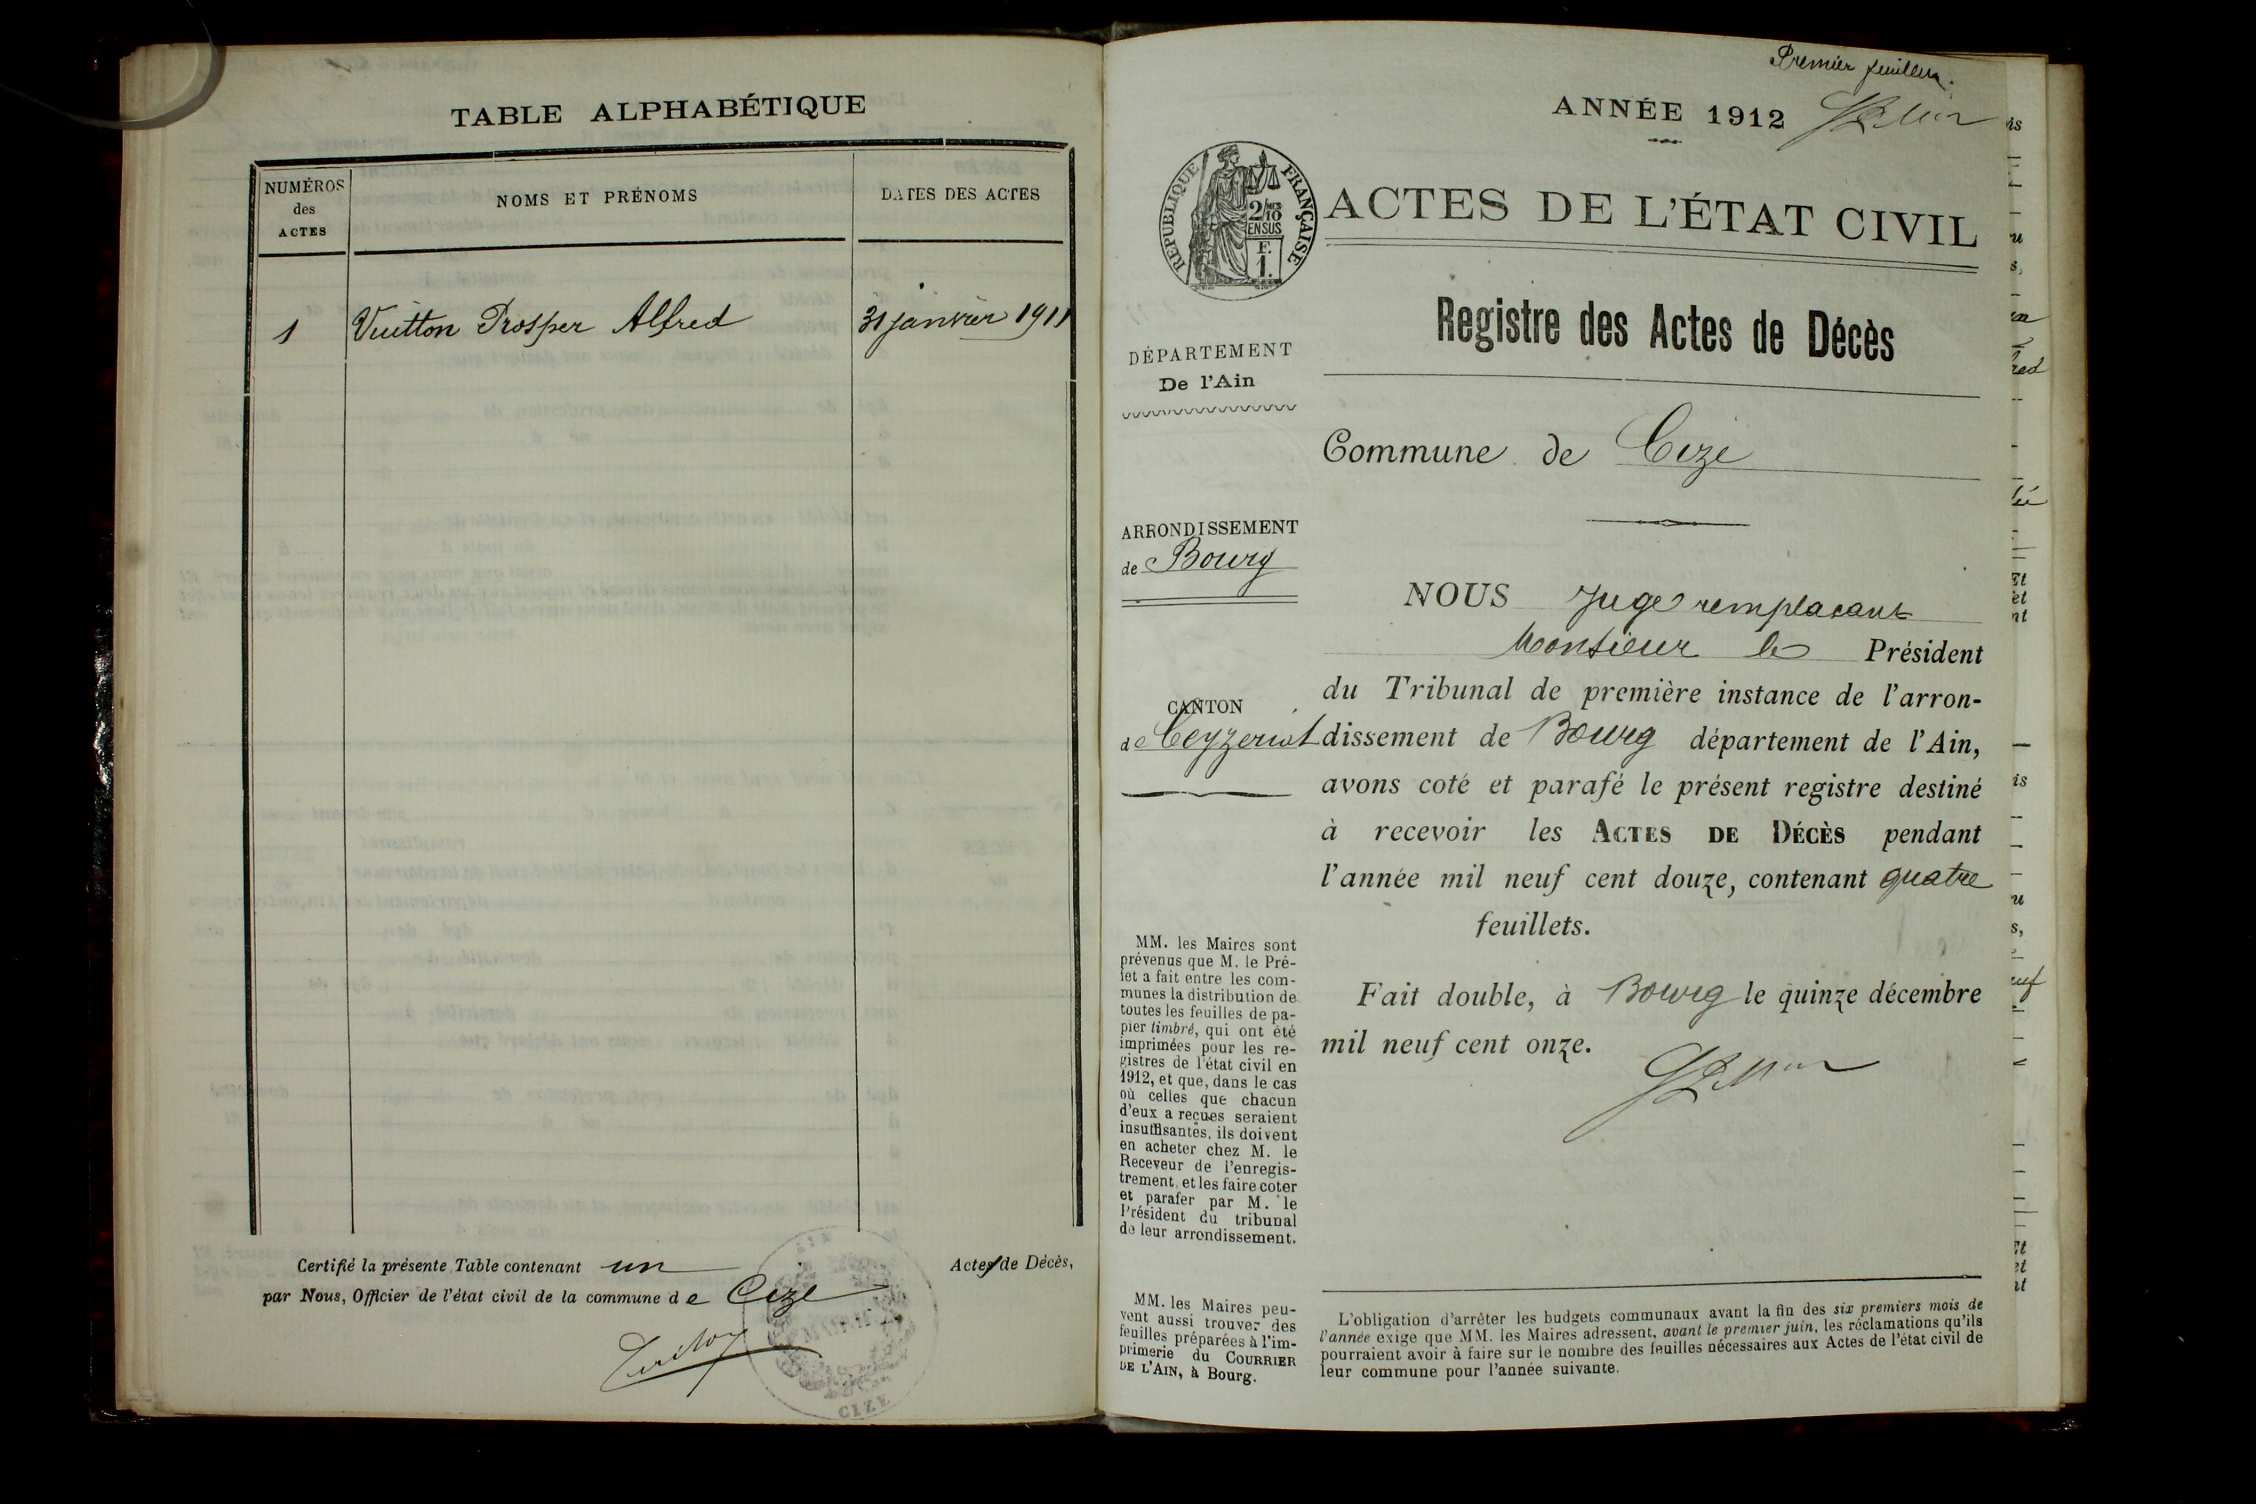 TABLE ALPHABÉTIQUE
NUMÉROS
des
ACTES
NOMS ET PRÉNOMS
DATES DES ACTES
1
Vuitton Prosper Alfred
31 janvier 1911
Certifié la présente Table contenant un Actes de Décès,
par Nous, Officier de l'état civil de la commune de Cize
CIZE
Premier feuillet.
ANNÉE 1912
RÉPUBLIQUE FRANÇAISE
2/10
EN SUS
F.
1.
ACTES DE L'ÉTAT CIVIL
Registre des Actes de Décès
DÉPARTEMENT
De l'Ain
Commune de Cize
ARRONDISSEMENT
de Bourg
CANTON
de Ceyzeriat
NOUS Juge remplacant
Monsieur le Président
du Tribunal de première instance de l'arron-
dissement de Bourg département de l'Ain,
avons coté et parafé le présent registre destiné
à recevoir les ACTES DE DÉCÈS pendant
l'année mil neuf cent douze, contenant quatre
feuillets.
Fait double, à Bourg le quinze décembre
mil neuf cent onze.
MM. les Maires sont
prévenus que M. le Pré-
fet a fait entre les com-
munes la distribution de
toutes les feuilles de pa-
pier timbré, qui ont été
imprimées pour les re-
gistres de l'état civil en
1912, et que, dans le cas
où celles que chacun
d'eux a reçues seraient
insuffisantes, ils doivent
en acheter chez M. le
Receveur de l'enregis-
trement, et les faire coter
et parafer par M. le
Président du tribunal
de leur arrondissement.
MM. les Maires peu-
vent aussi trouver des
feuilles préparées à l'im-
primerie du COURRIER
DE L'AIN, à Bourg.
L'obligation d'arrêter les budgets communaux avant la fin des six premiers mois de
l'année exige que MM. les Maires adressent, avant le premier juin, les réclamations qu'ils
pourraient avoir à faire sur le nombre des feuilles nécessaires aux Actes de l'état civil de
leur commune pour l'année suivante.